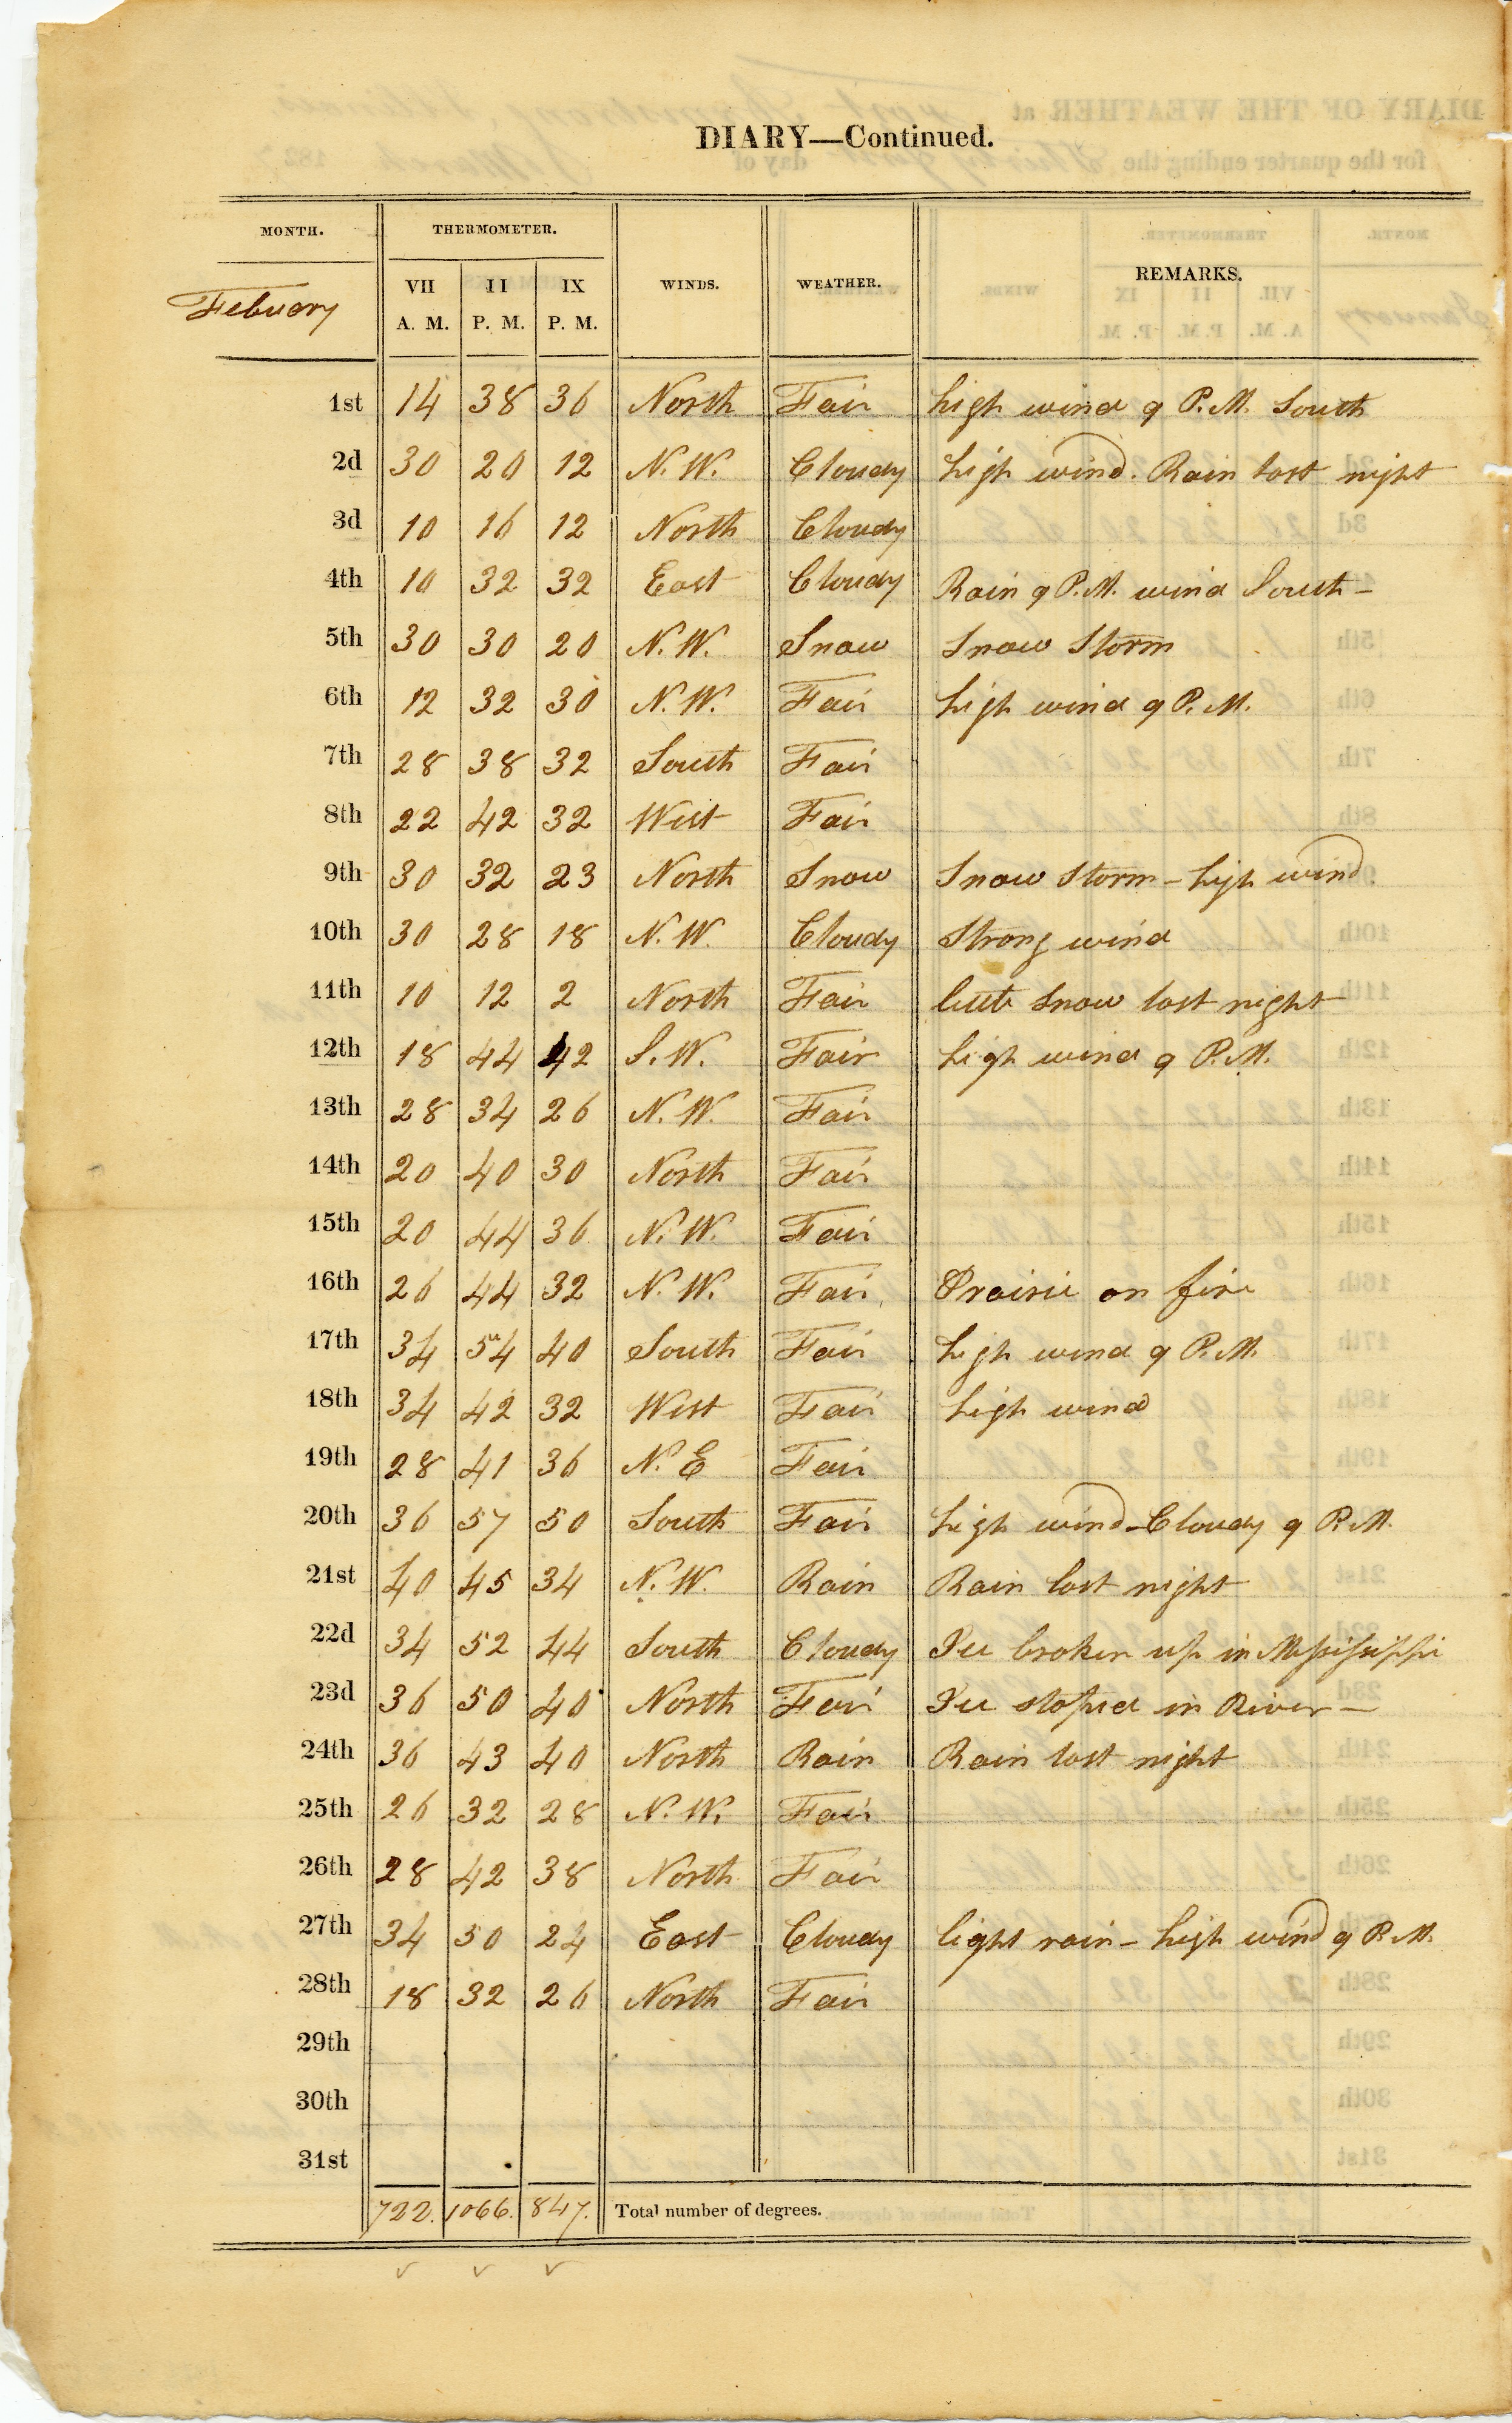 DIARY—Continued.
MONTH. THERMOMETER. WINDS. WEATHER. REMARKS.
Febuary VII A. M. II P. M. IX P. M.
1st 14 38 36 North Fair high wind 9 P.M. South
2d 30 20 12 N.W. Cloudy high wind. Rain last night
3d 10 16 12 North Cloudy
4th 10 32 32 East Cloudy Rain 9 P.M. wind South –
5th 30 30 20 N.W. Snow Snow Storm
6th 12 32 30 N.W. Fair high wind 9 P.M.
7th 28 38 32 South Fair
8th 22 42 32 West Fair
9th 30 32 23 North Snow Snow Storm – high wind
10th 30 28 18 N.W. Cloudy Strong wind
11th 10 12 2 North Fair little Snow last night
12th 18 44 42 S.W. Fair high wind 9 P.M.
13th 28 34 26 N.W. Fair
14th 20 40 30 North Fair
15th 20 44 36 N.W. Fair
16th 26 44 32 N.W. Fair Prairie on fire
17th 34 54 40 South Fair high wind 9 P.M.
18th 34 42 32 West Fair high wind
19th 28 41 36 N.E Fair
20th 36 57 50 South Fair high wind – Cloudy 9 P.M.
21st 40 45 34 N.W. Rain Rain last night
22d 34 52 44 South Cloudy Ice broken up in Missisippi
23d 36 50 40 North Fair Ice stoped in River –
24th 36 43 40 North Rain Rain last night
25th 26 32 28 N.W. Fair
26th 28 42 38 North Fair
27th 34 50 24 East Cloudy light rain – high wind 9 P.M.
28th 18 32 26 North Fair
29th
30th
31st
722. 1066. 847. Total number of degrees.